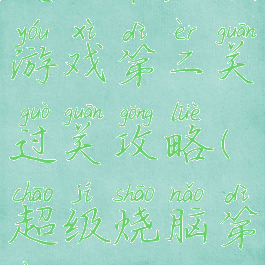 yóu xì dì èr guān
游戏第二关
guò guān gōng lüè
过关攻略(
chāo jí shāo nǎo dì
超级烧脑第